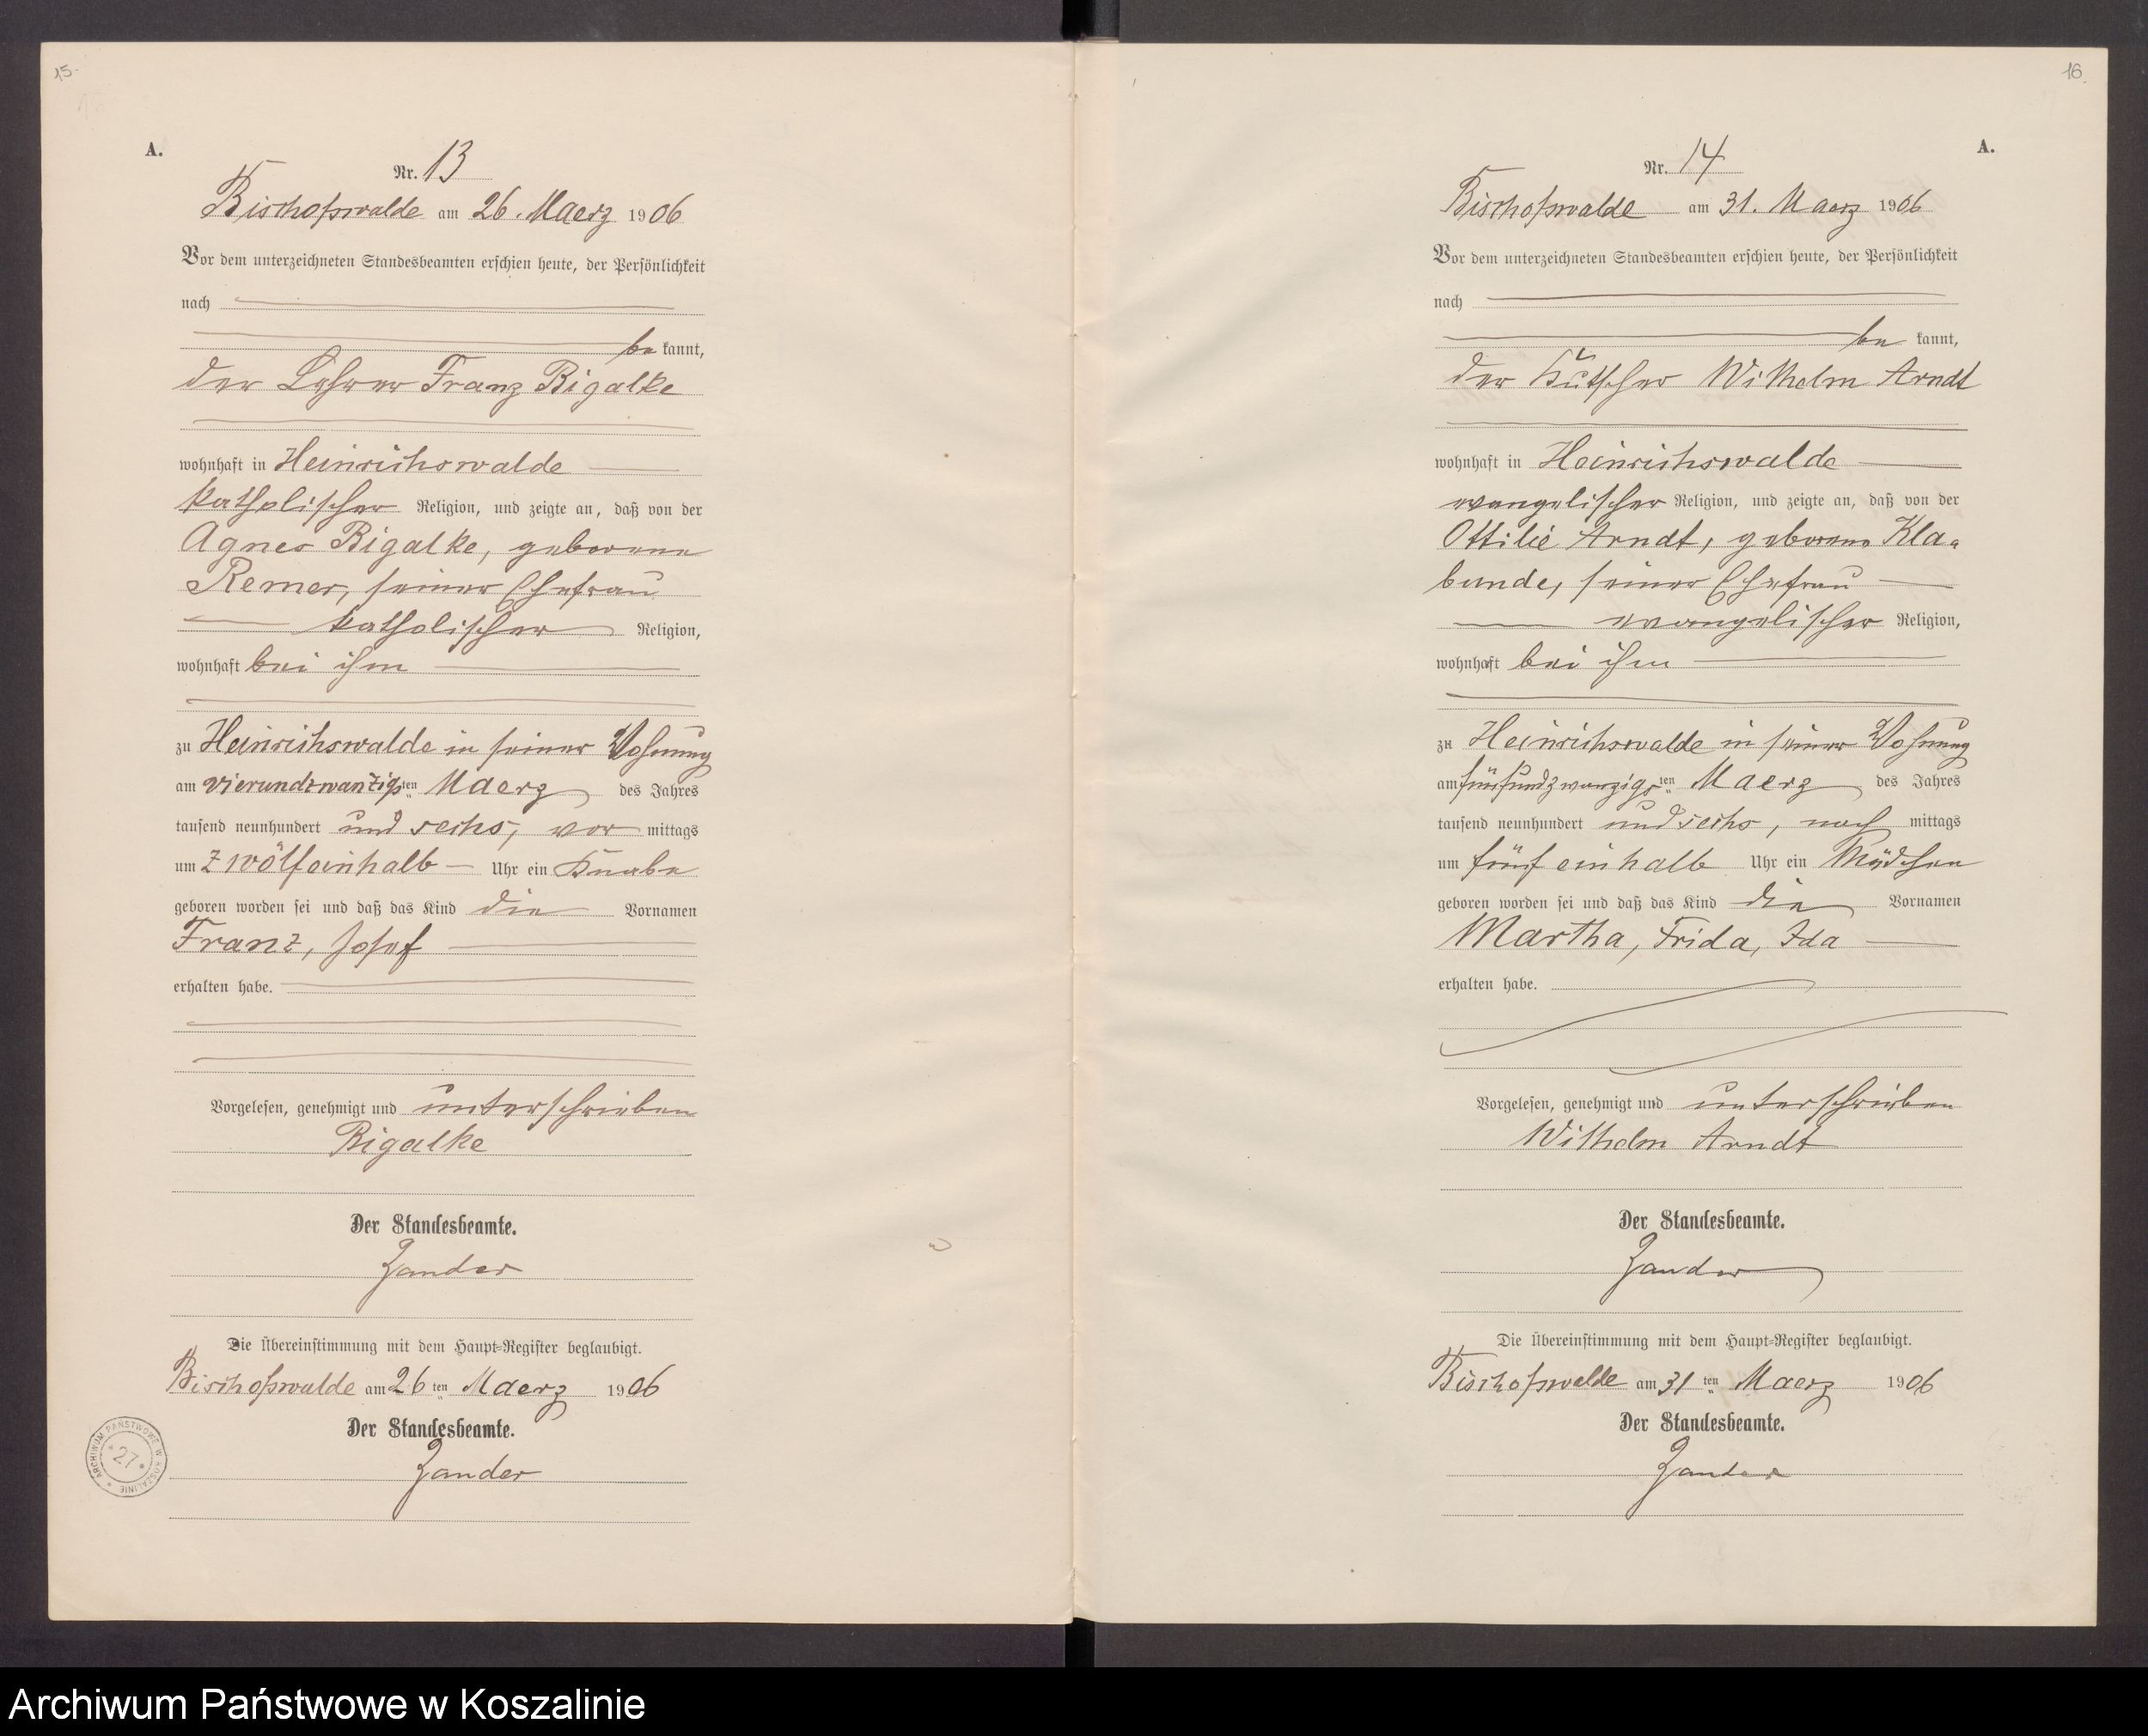 15.
A.
Nr. 13
Bischofswalde am 26. Maerz 1906
Vor dem unterzeichneten Standesbeamten erschien heute, der Persönlichkeit
nach
be kannt,
der Lehrer Franz Rigalke
wohnhaft in Heinrichswalde
katholischer Religion, und zeigte an, daß von der
Agnes Rigalke, geborene
Remer, seiner Ehefrau
katholischer Religion,
wohnhaft bei ihm
zu Heinrichswalde in seiner Wohnung
am vierundzwanzigsten Maerz des Jahres
tausend neunhundert und sechs, vor mittags
um zwölfeinhalb Uhr ein Knabe
geboren worden sei und daß das Kind die Vornamen
Franz, Josef
erhalten habe.
Vorgelesen, genehmigt und unterschrieben
Rigalke
Der Standesbeamte.
Zander
Die Übereinstimmung mit dem Haupt-Register beglaubigt.
Bischofswalde am 26 ten Maerz 1906
Der Standesbeamte.
Zander
ARCHIWUM PAŃSTWOWE W KOSZALINIE
* 27 *
16.
A.
Nr. 14
Bischofswalde am 31. Maerz 1906
Vor dem unterzeichneten Standesbeamten erschien heute, der Persönlichkeit
nach
be kannt,
der Kutscher Wilhelm Arndt
wohnhaft in Heinrichswalde
evangelischer Religion, und zeigte an, daß von der
Ottilie Arndt, geborene Kla-
bunde, seiner Ehefrau
evangelischer Religion,
wohnhaft bei ihm
zu Heinrichswalde in seiner Wohnung
am fünfundzwanzigsten Maerz des Jahres
tausend neunhundert und sechs, nach mittags
um fünf einhalb Uhr ein Mädchen
geboren worden sei und daß das Kind die Vornamen
Martha, Frida, Ida
erhalten habe.
Vorgelesen, genehmigt und unterschrieben
Wilhelm Arndt
Der Standesbeamte.
Zander
Die Übereinstimmung mit dem Haupt-Register beglaubigt.
Bischofswalde am 31 ten Maerz 1906
Der Standesbeamte.
Zander
Archiwum Państwowe w Koszalinie